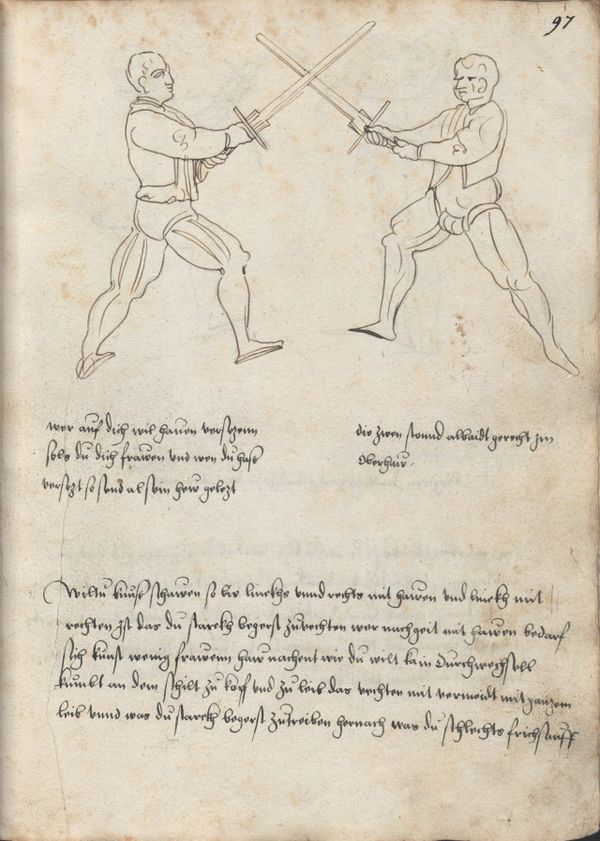 97
wer auf dich wil hauen versetzenn
sols du dich frawen und wen du hast
versetzt so send al sein hew geletzt
die zwen stannd albaidt gerecht zu
Oberhaw.
Wiltu kunst schawen so bis linckhs unnd rechts mit hawen und linckh mit
rechten ist das du starckh begerst zuvechten wer nachgeit mit hawen bedarf
sich kunst wenig frawenn haw nachent wie du wilt kain durchwechsell
kumbt an dem schilt zu kopf und zu leib das vechten nit vermeidt mit ganzem
leib unnd was du starckh begerst zutreiben hernach was du schlechts frichs auff